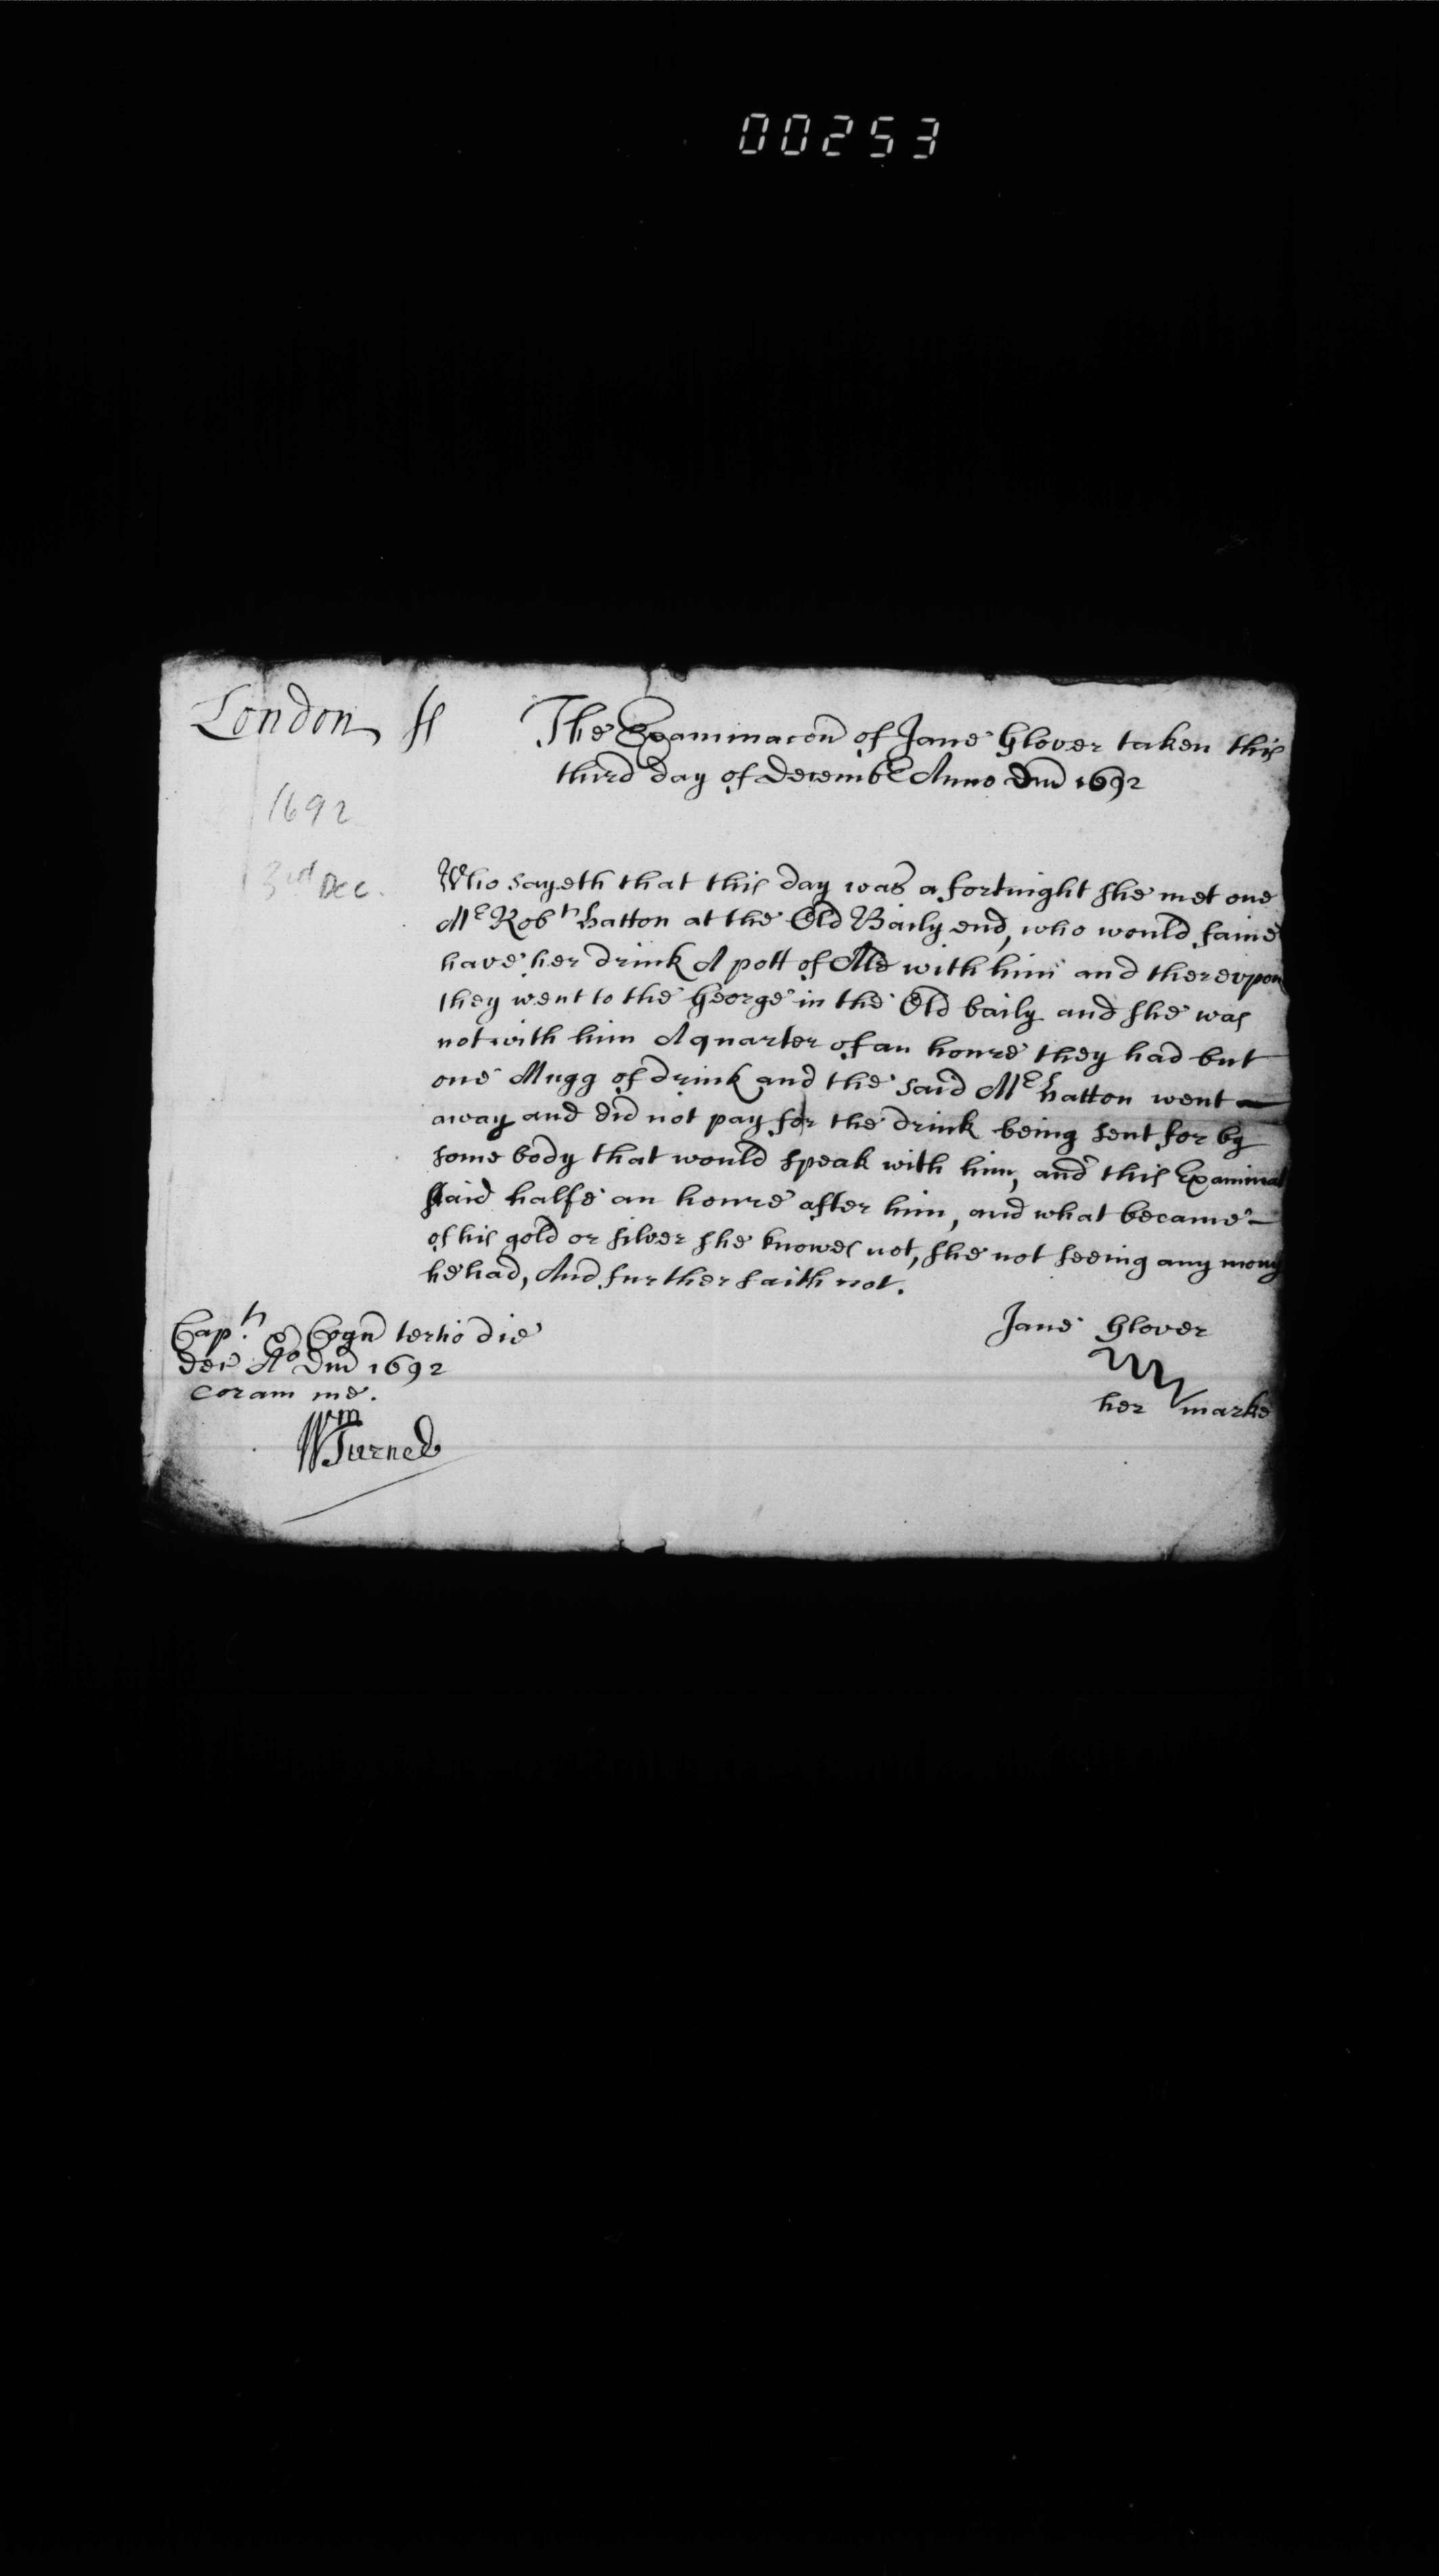 00253
London ss The Examinacon of Jane Glover taken this
third day of Decembr Anno Dm 1692
1692
3rd Dec.
Who sayeth that this day was a fortnight she met one
Mr Robt hatton at the Old Baily end, who would faine
have her drink A pott of Ale with him and therevpon
they went to the George in the Old baily and she was
not with him A quarter of an houre they had but
one Mugg of drink and the said Mr hatton went
away and did not pay for the drink being sent for by
some body that would speak with him, and this Examinat
staid halfe an houre after him, and what became
of his gold or silver she knowes not, she not seeing any mony
he had, And further saith not.
Capt. & Cogn tertio die
Dec Ao Dm 1692
coram me.
Wm Turner
Jane Glover
her marke